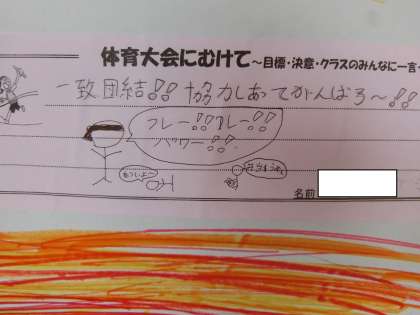 体育大会にむけて～目標・決意・クラスのみんなに一言
一致団結!! 協力しあってがんばろ～!!
フレー!!フレー!!
パワー!!
名前